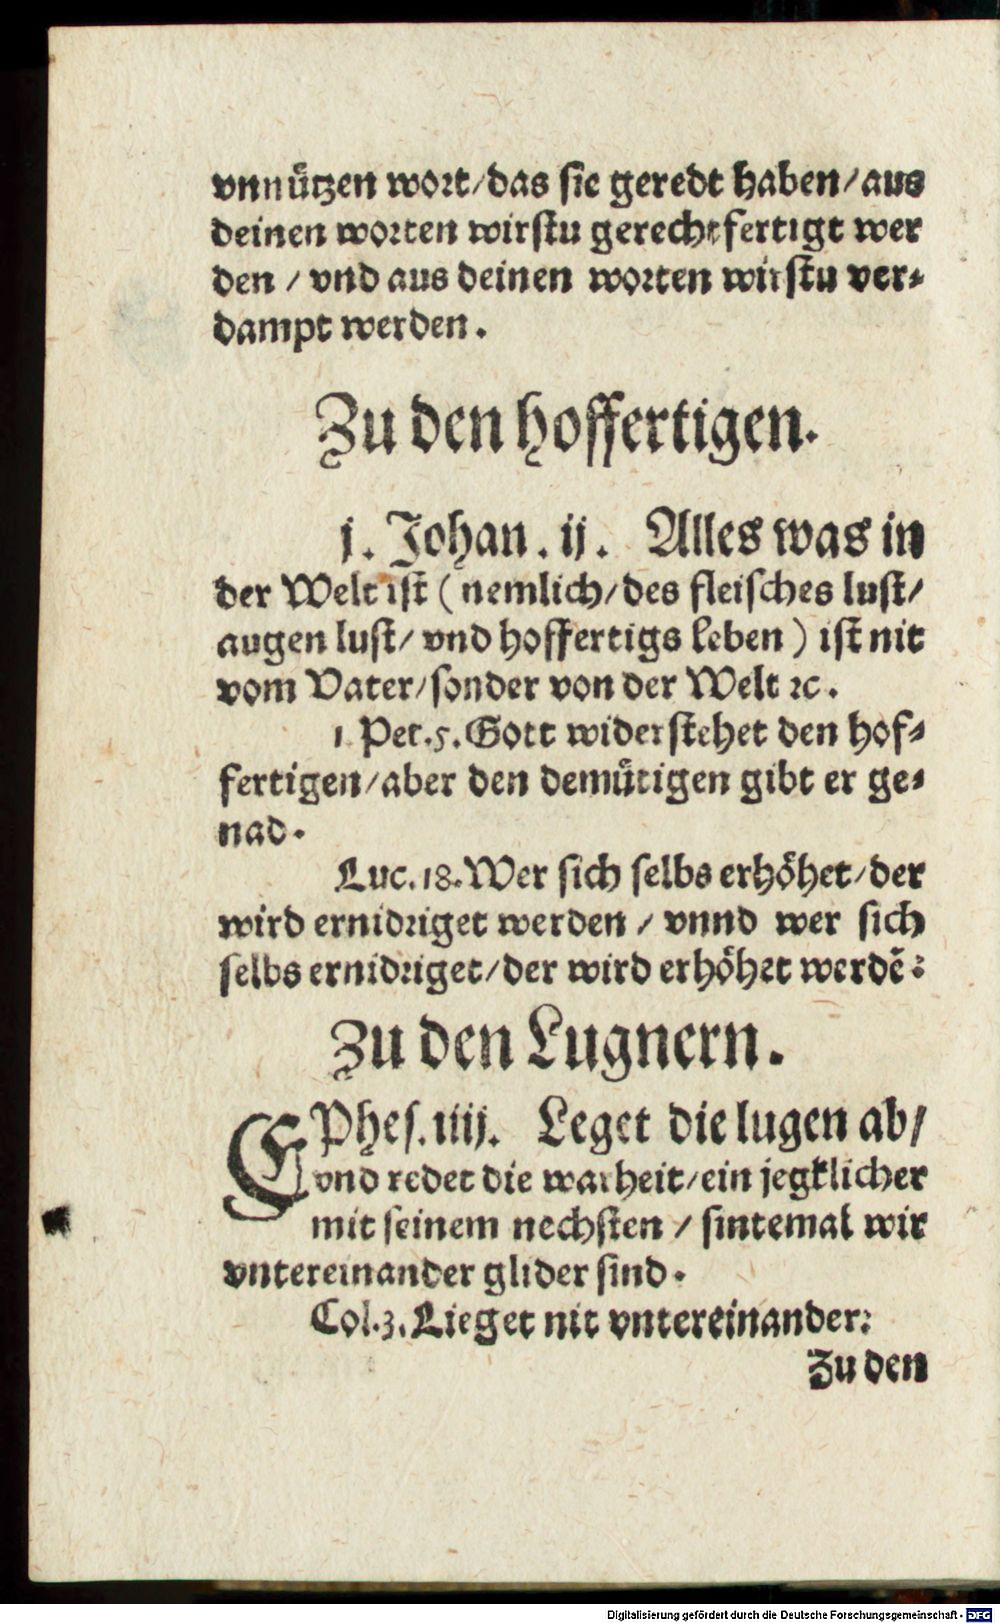 vnnützen wort/das sie geredt haben/aus
deinen worten wirstu gerechtfertigt wer
den / vnd aus deinen worten wirstu ver-
dampt werden.
Zu den hoffertigen.
j. Johan. ij. Alles was in
der Welt ist (nemlich/des fleisches lust/
augen lust/ vnd hoffertigs leben) ist nit
vom Vater/sonder von der Welt ꝛc.
1 Pet.5. Gott widerstehet den hof-
fertigen/aber den demütigen gibt er ge-
nad.
Luc.18. Wer sich selbs erhöhet/der
wird ernidriget werden / vnnd wer sich
selbs ernidriget/der wird erhöhet werdẽ:
Zu den Lugnern.
EPhes. iiij. Leget die lugen ab/
vnd redet die warheit/ein jegklicher
mit seinem nechsten / sintemal wir
vntereinander glider sind.
Col.3. Lieget nit vntereinander:
Zu den
Digitalisierung gefördert durch die Deutsche Forschungsgemeinschaft - DFG